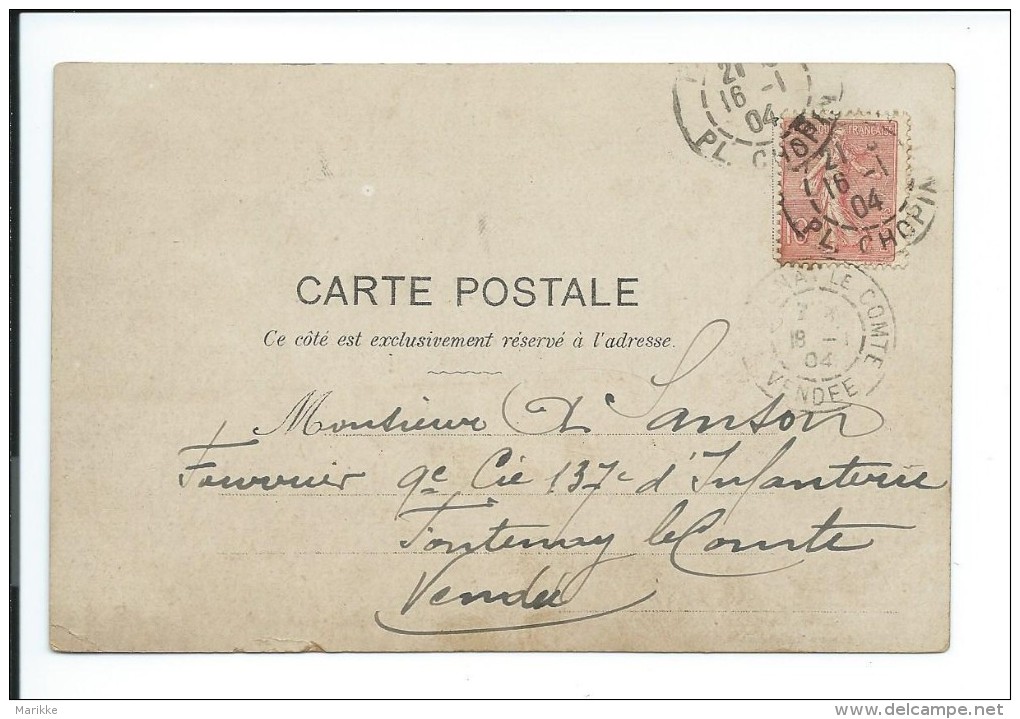 21
16 -1
04
PL. CHOPIN
FRANÇAISE
21
16 -1
04
PL. CHOPIN
10
LE COMTE
18 -1
04
VENDEE
CARTE POSTALE
Ce côté est exclusivement réservé à l'adresse.
Monsieur Sanson
Fourrier 9e Cie 137e d'Infanterie
Fontenay le Comte
Vendée
Marikke